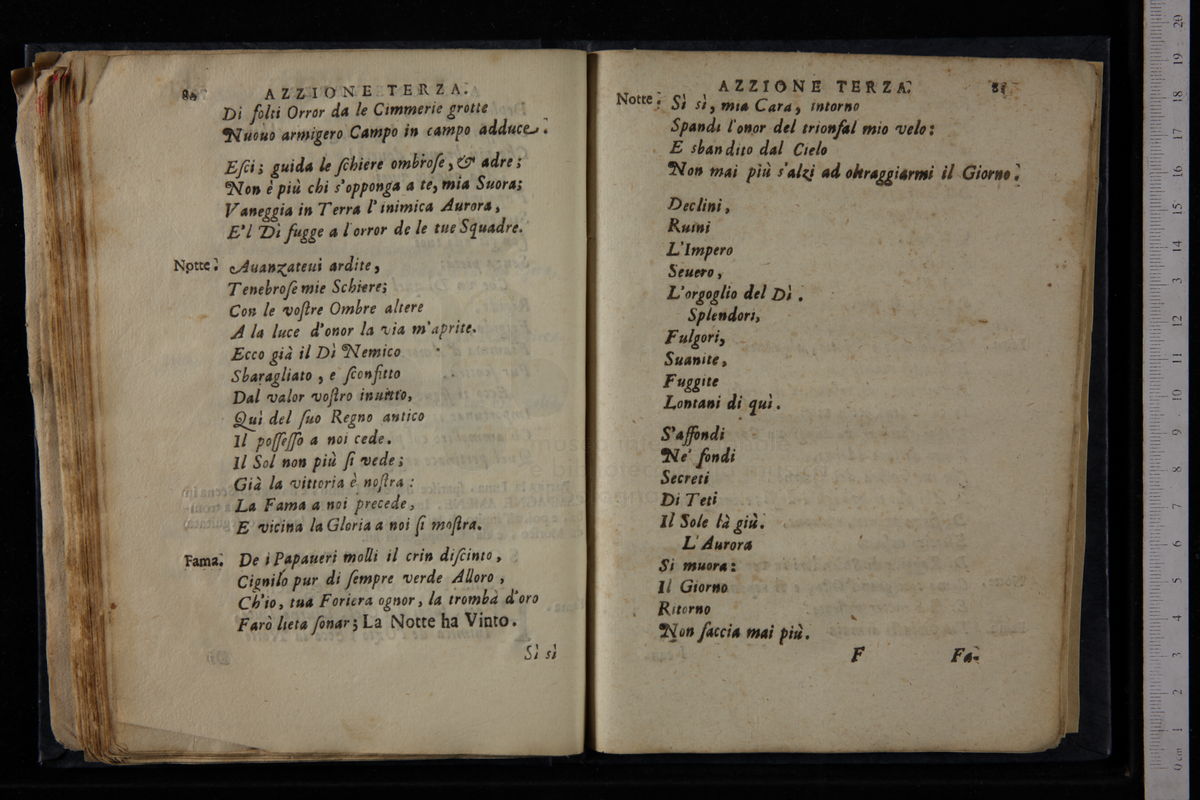 80 AZZIONE TERZA.
Di folti Orror da le Cimmerie grotte
Nuouo armigero Campo in campo adduce.
Eſci; guida le ſchiere ombroſe, & adre;
Non è più chi s'opponga a te, mia Suora;
Vaneggia in Terra l'inimica Aurora,
E'l Dì fugge a l orror de le tue Squadre.
Notte. Auanzateui ardite,
Tenebroſe mie Schiere;
Con le voſtre Ombre altere
A la luce d'onor la via m'aprite.
Ecco già il Dì Nemico
Sbaragliato, e ſconfitto
Dal valor voſtro inuitto,
Quì del ſuo Regno antico
Il poſſeſſo a noi cede.
Il Sol non più ſi vede;
Già la vittoria è noſtra:
La Fama a noi precede,
E vicina la Gloria a noi ſi moſtra.
Fama. De i Papaueri molli il crin diſcinto,
Cignilo pur di ſempre verde Alloro,
Ch'io, tua Foriera ognor, la tromba d'oro
Farò lieta ſonar; La Notte ha Vinto.
Sì sì
AZZIONE TERZA. 81
Notte. Sì sì, mia Cara, intorno
Spandi l'onor del trionfal mio velo:
E sbandito dal Cielo
Non mai più s'alzi ad oltraggiarmi il Giorno.
Declini,
Ruini
L'Impero
Seuero,
L'orgoglio del Dì.
Splendori,
Fulgori,
Suanite,
Fuggite
Lontani di quì.
S'affondi
Ne' fondi
Secreti
Di Teti
Il Sole là giù.
L'Aurora
Si muora:
Il Giorno
Ritorno
Non faccia mai più.
F Fa-